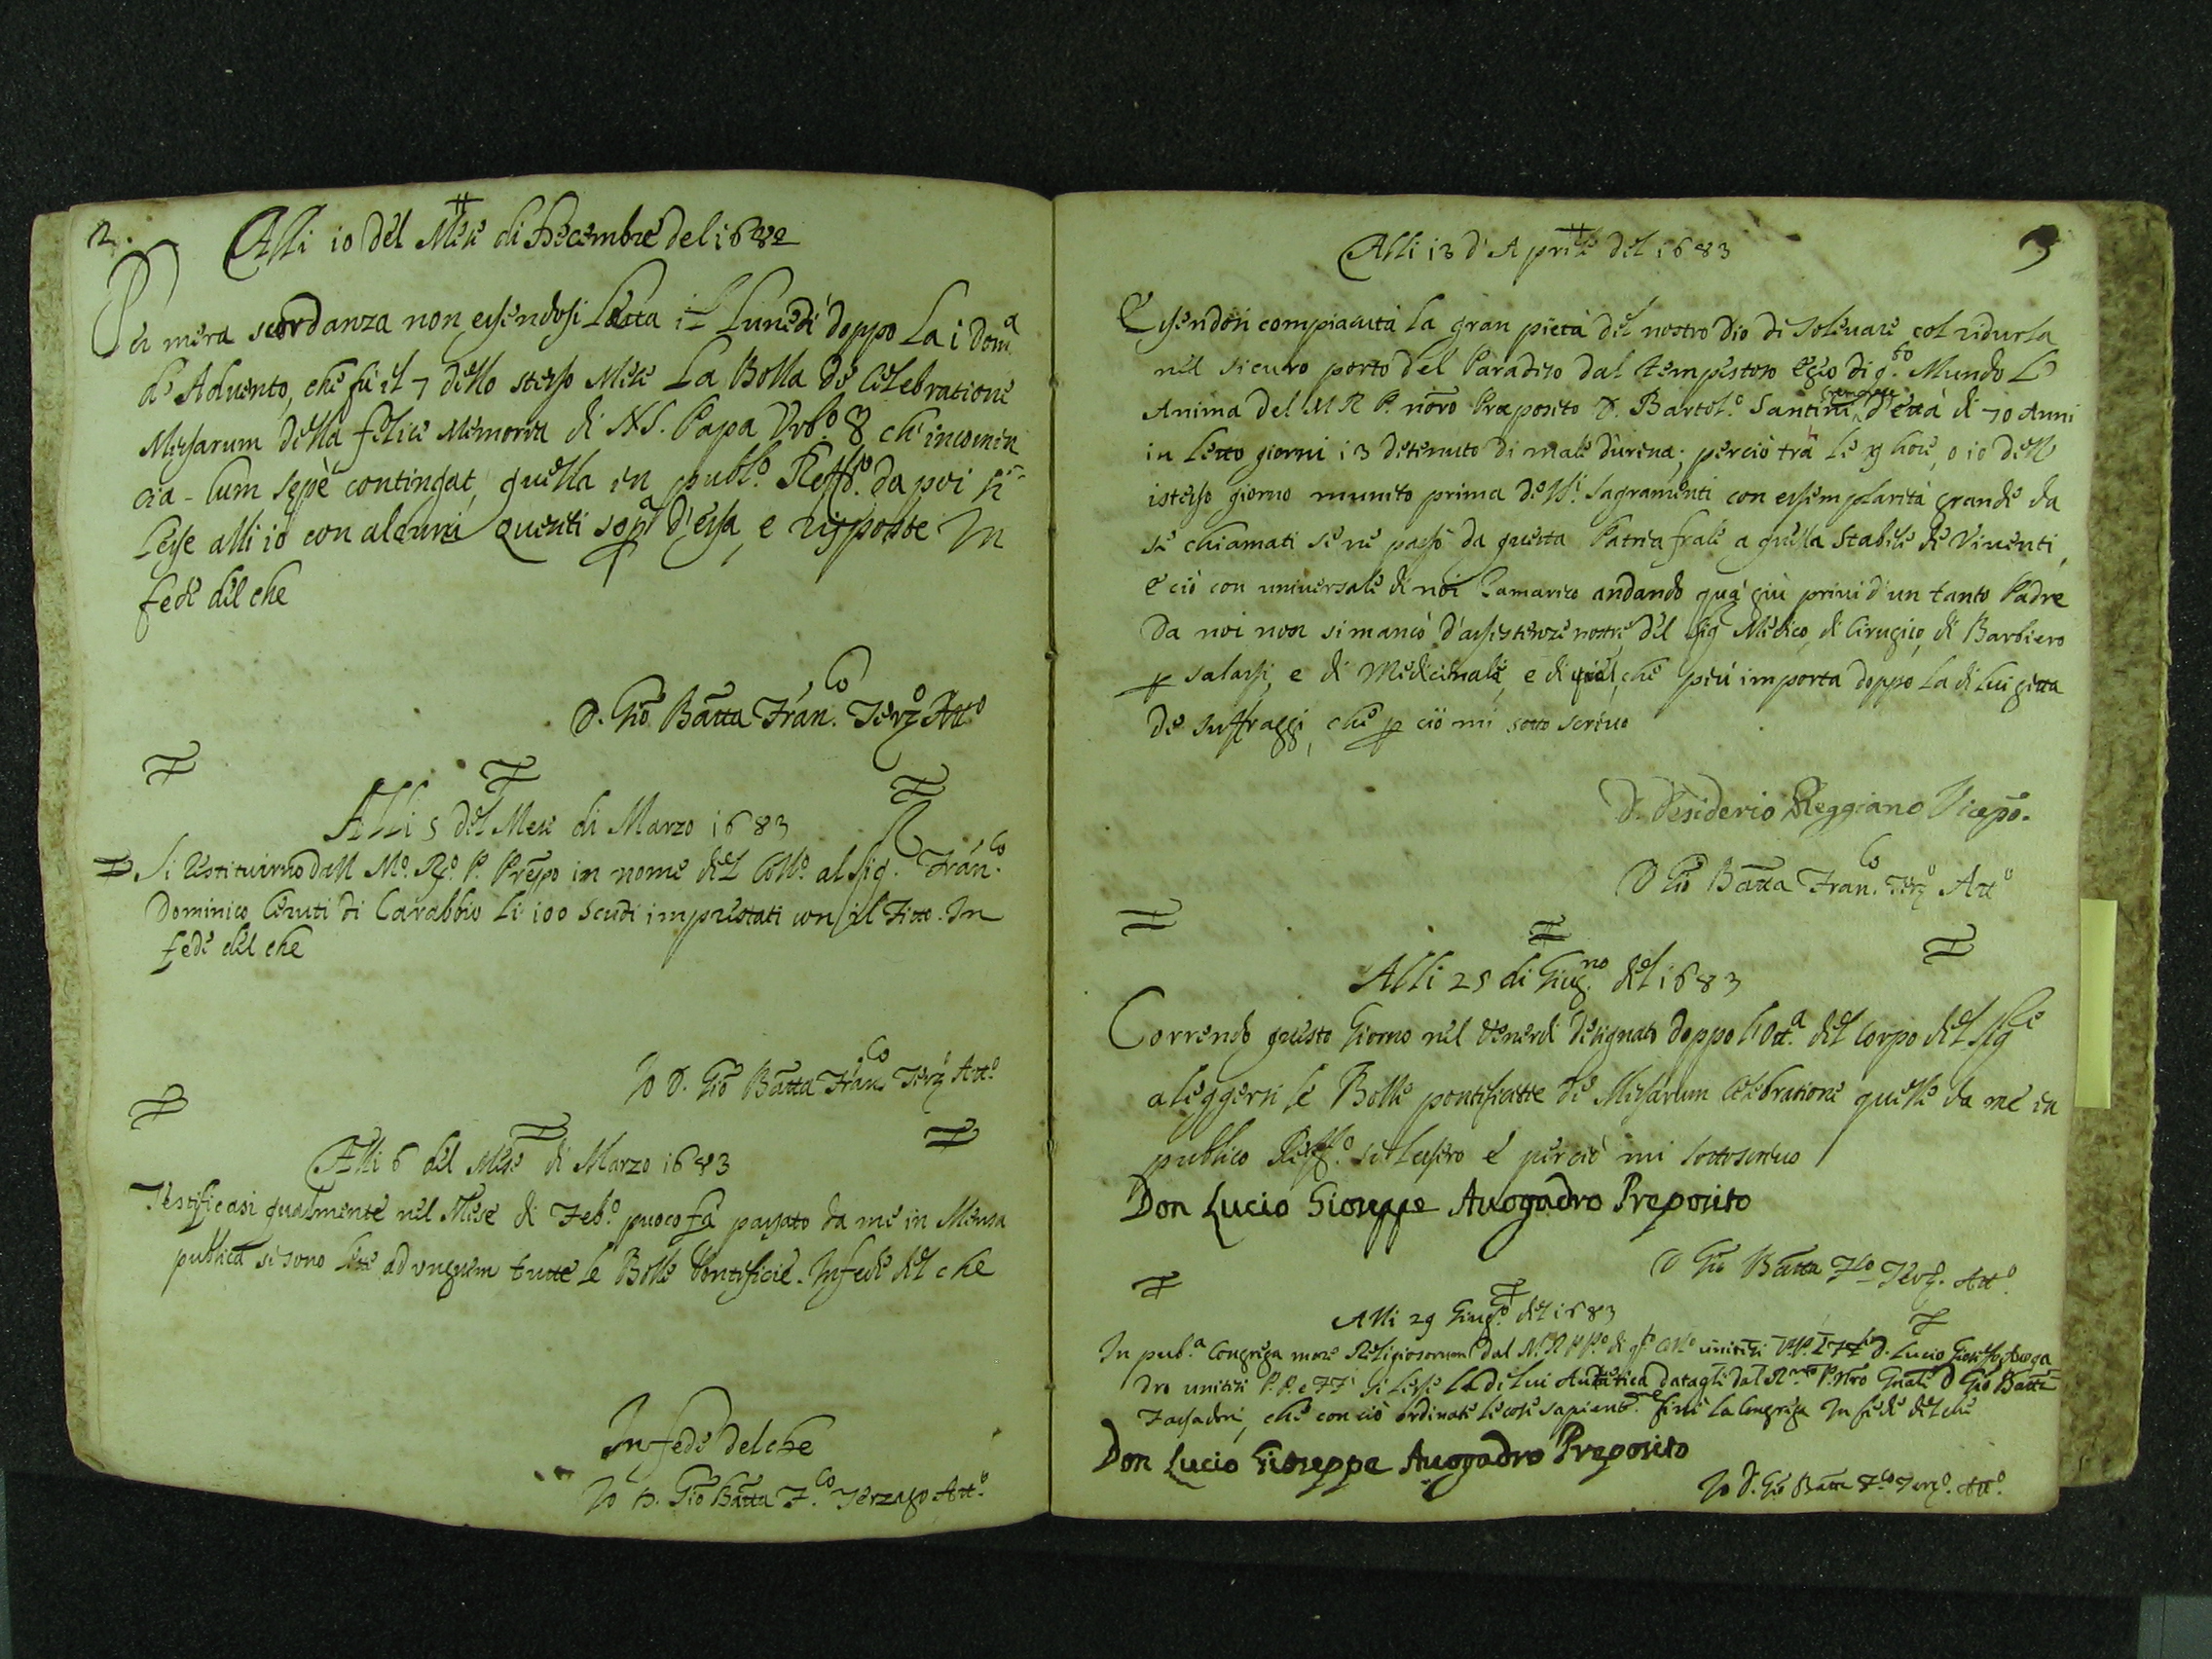 2.
Alli 10 del Mese di Decembre del 1682
Per mera scordanza non essendosi letta il Lunedi doppo la 1 Domᵃ
de Aduento, che fù il 7 dello stesso Mese La Bolla de Celebratione
Missarum della felice Memoria di N.S. Papa Vrbº 8 ch'incomin
cia - Cum sepè contingat, quella in publº Reffº da poi si
lesse alli 10 con alcuni quesiti sopª d'essa, e risposte In
fede del che
D. Gio Batta Franᶜᵒ Terzº Attº
Alli 5 del Mese di Marzo 1683
Si restituirno dall Mº Rº P. Preppo in nome del Collº al Sig. Franᶜᵒ
Dominico Ceruti di Carabbio li 100 Scudi imprestati con il Fitto. In
fede del che
Io D. Gio Batta Franᶜᵒ Terzº Attº
Alli 6 del Mese di Marzo 1683
Testificasi qualmente nel Mese di Febº puoco fà passato da me in Mensa
publica si sono lette ad unguem tutte le Bolle Pontificie. In fede del che
In fede del che
Io D. Gio Batta F.ᶜᵒ Terzago Attº
3
Alli 13 d'Aprile del 1683
Essendosi compiaciuta la gran pietà del nostro Dio di soleuare col ridurla
nel sicuro porto del Paradiso dal tempestoso Egeo di qᵗᵒ Mundo L
Anima del M R P. nrō Præposito D. Bartolº Santini d'età di 70 Anni
in letto giorni 13 detenuto di male d'urina; perciò trà le 9 hore, o 10 dell
istesso giorno munito prima de SSⁱ Sagramenti con essemplarità grande da
sè chiamati se ne passò da questa Patria frale a quella stabile de Viuenti,
e ciò con universale di noi ramarico andando quà giù priui d'un tanto Padre
Da noi non si mancò d'assistenze nostre del Sig Medico, di Cirugico, di Barbiero
p salassi, e di Medicinali, e di quel, che più importa doppo la di lui gitta
de suffraggi, che p ciò mi sotto scriuo
D. Desiderio Reggiano Vicepō.
D Gio Batta Franᶜᵒ Terzº Attº
Alli 25 di Giugⁿᵒ del 1683
Correndo questo Giorno nel Venerdi designato doppo l'Ottᵃ del Corpo del Sigʳᵉ
a leggersi le Bolle pontificie de Missarum Celebratione quelle da me in
publico Reffº si lessero e perciò mi sottoscriuo
Don Lucio Gioseppe Auogadro Preposito
D Gio Batta Fᶜᵒ Terzº Attº
Alli 29 Giugº del 1683
In pubᵃ Congrega more Religiosorum dal M.R.P.Pº di qᵗᵒ Collº D. Lucio Auoga
dro unititi P.P. e FF si lesse la di lui datagli dal P. nro Gnale D Gio Batta
che con ciò ordinate le cose finì la Congrega In fede del che
Don Lucio Gioseppe Auogadro Preposito
Io D. Gio Batta Fᶜᵒ Terzº Attº